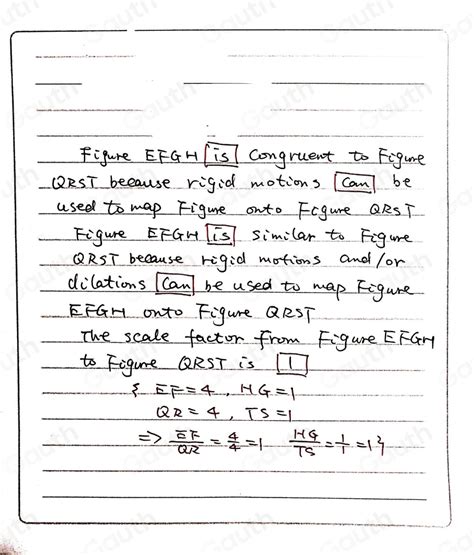 Figure EFGH is congruent to Figure
QRST because rigid motions can be
used to map Figure onto Figure QRST
Figure EFGH is similar to Figure
QRST because rigid motions and/or
dilations can be used to map Figure
EFGH onto Figure QRST
The scale factor from Figure EFGH
to Figure QRST is 1
{ EF=4, HG=1
QR=4, TS=1
=> EF/QR = 4/4 = 1 HG/TS = 1/1 = 1 }
Gauth